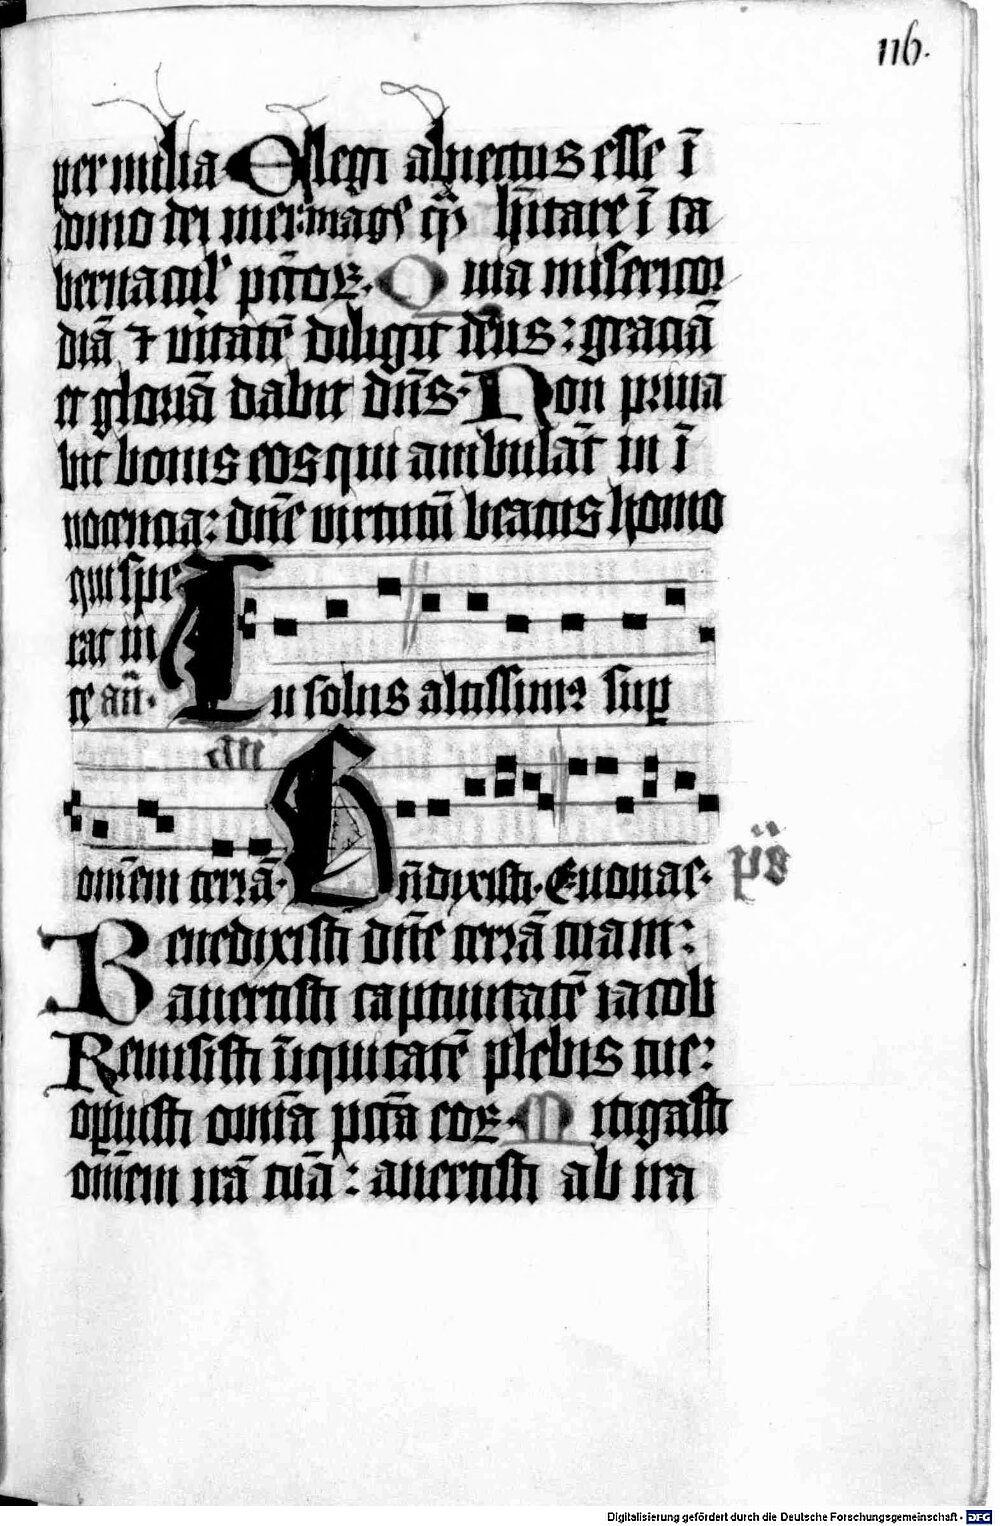 116.
per milia Elegi abiectus esse ī
domo dei mei: magꝭ qͣ hītare ī ta
bernacul' pctōꝝ. Quia misericor
diā ⁊ vītatē diligit deus: graciā
et gloriā dabit dn̄s. Non priua
bit bonis eos qui ambulāt in ī
nocencia: dn̄e virtutū beatus homo
qui spe
rat in
te an̄. Tu solus altissimꝰ suꝑ
an̄
om̄em terrā. Bn̄dixisti. Euouae.
pͥs
Benedixisti dn̄e terrā tuam:
auertisti captiuitatē iacob
Remisisti īiquitatē plebis tue:
oꝑuisti omīa pctā eoꝝ. Mitigasti
om̄em irā tuā: auertisti ab ira
Digitalisierung gefördert durch die Deutsche Forschungsgemeinschaft - DFG